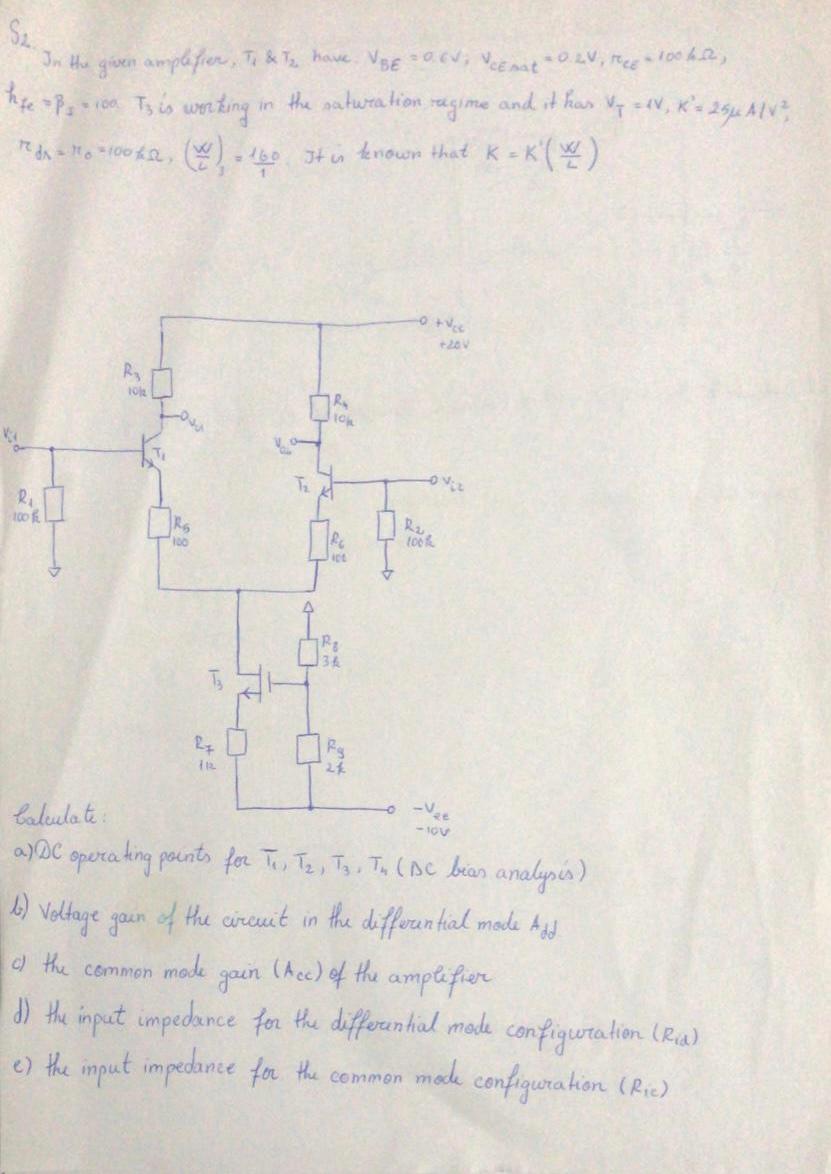 S2.
In the given amplifier, T1 & T2 have VBE = 0.6V; VCEsat = 0.2V, rCE = 100kΩ,
hfe = β = 100. T3 is working in the saturation regime and it has VT = 1V, K' = 25μA/V²,
rds = r0 = 100kΩ, (W/L)3 = 160/1. It is known that K = K'(W/L)
+Vcc
+20V
R3
10k
R4
10k
Vi1
T1
T2
Vi2
R1
100k
R5
100
R6
100
R2
100k
R8
3k
T3
R7
1k
R9
2k
-VEE
-10V
Calculate:
a) DC operating points for T1, T2, T3, T4 (DC bias analysis)
b) Voltage gain of the circuit in the differential mode Add
c) the common mode gain (Acc) of the amplifier
d) the input impedance for the differential mode configuration (Rid)
e) the input impedance for the common mode configuration (Ric)